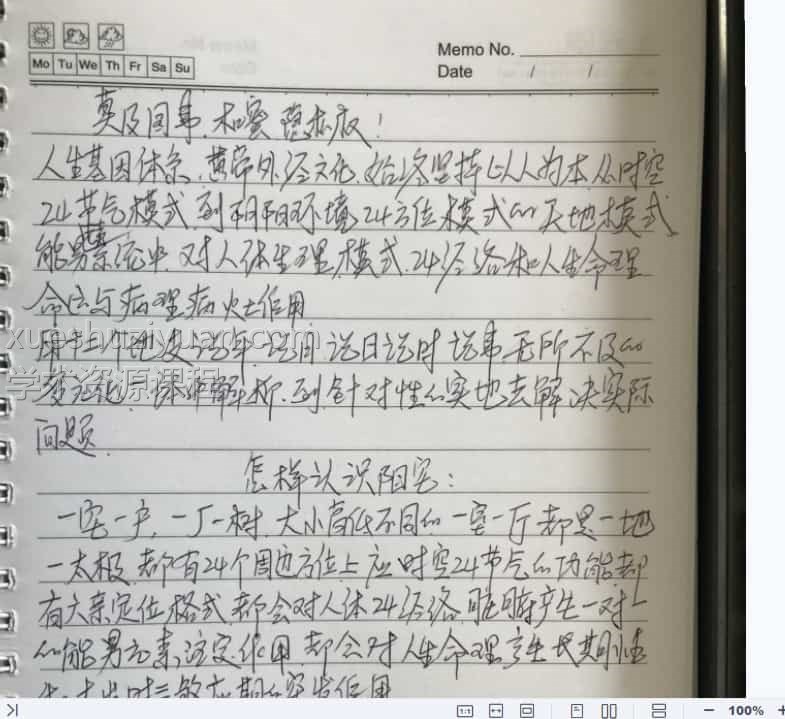 Memo No.
Mo Tu We Th Fr Sa Su
Date / /
人生基因体系，黄帝外经文化，始终坚持以人为本，从时空
24节气模式，到阴阳环境24方位模式的天地模式
能量 对人体生理模式，24经络和人生命理
命运与病理病灶作用
用十二个地支论年，论月论日论时论事无所不及的
变化 体作解析，到针对性的实地去解决实际
问题
怎样认识阳宅：
一宅一户，一厂一树，大小高低不同的一室一厅都是一地
一太极，都有24个周边方位上应时空24节气的功能都
有六亲定位格式，都会对人体24经络 脏腑产生一对一
的能 元素 作用，都会对人生命理产生长期
xueshuziyuan.com
学术资源课程
1:1
100%